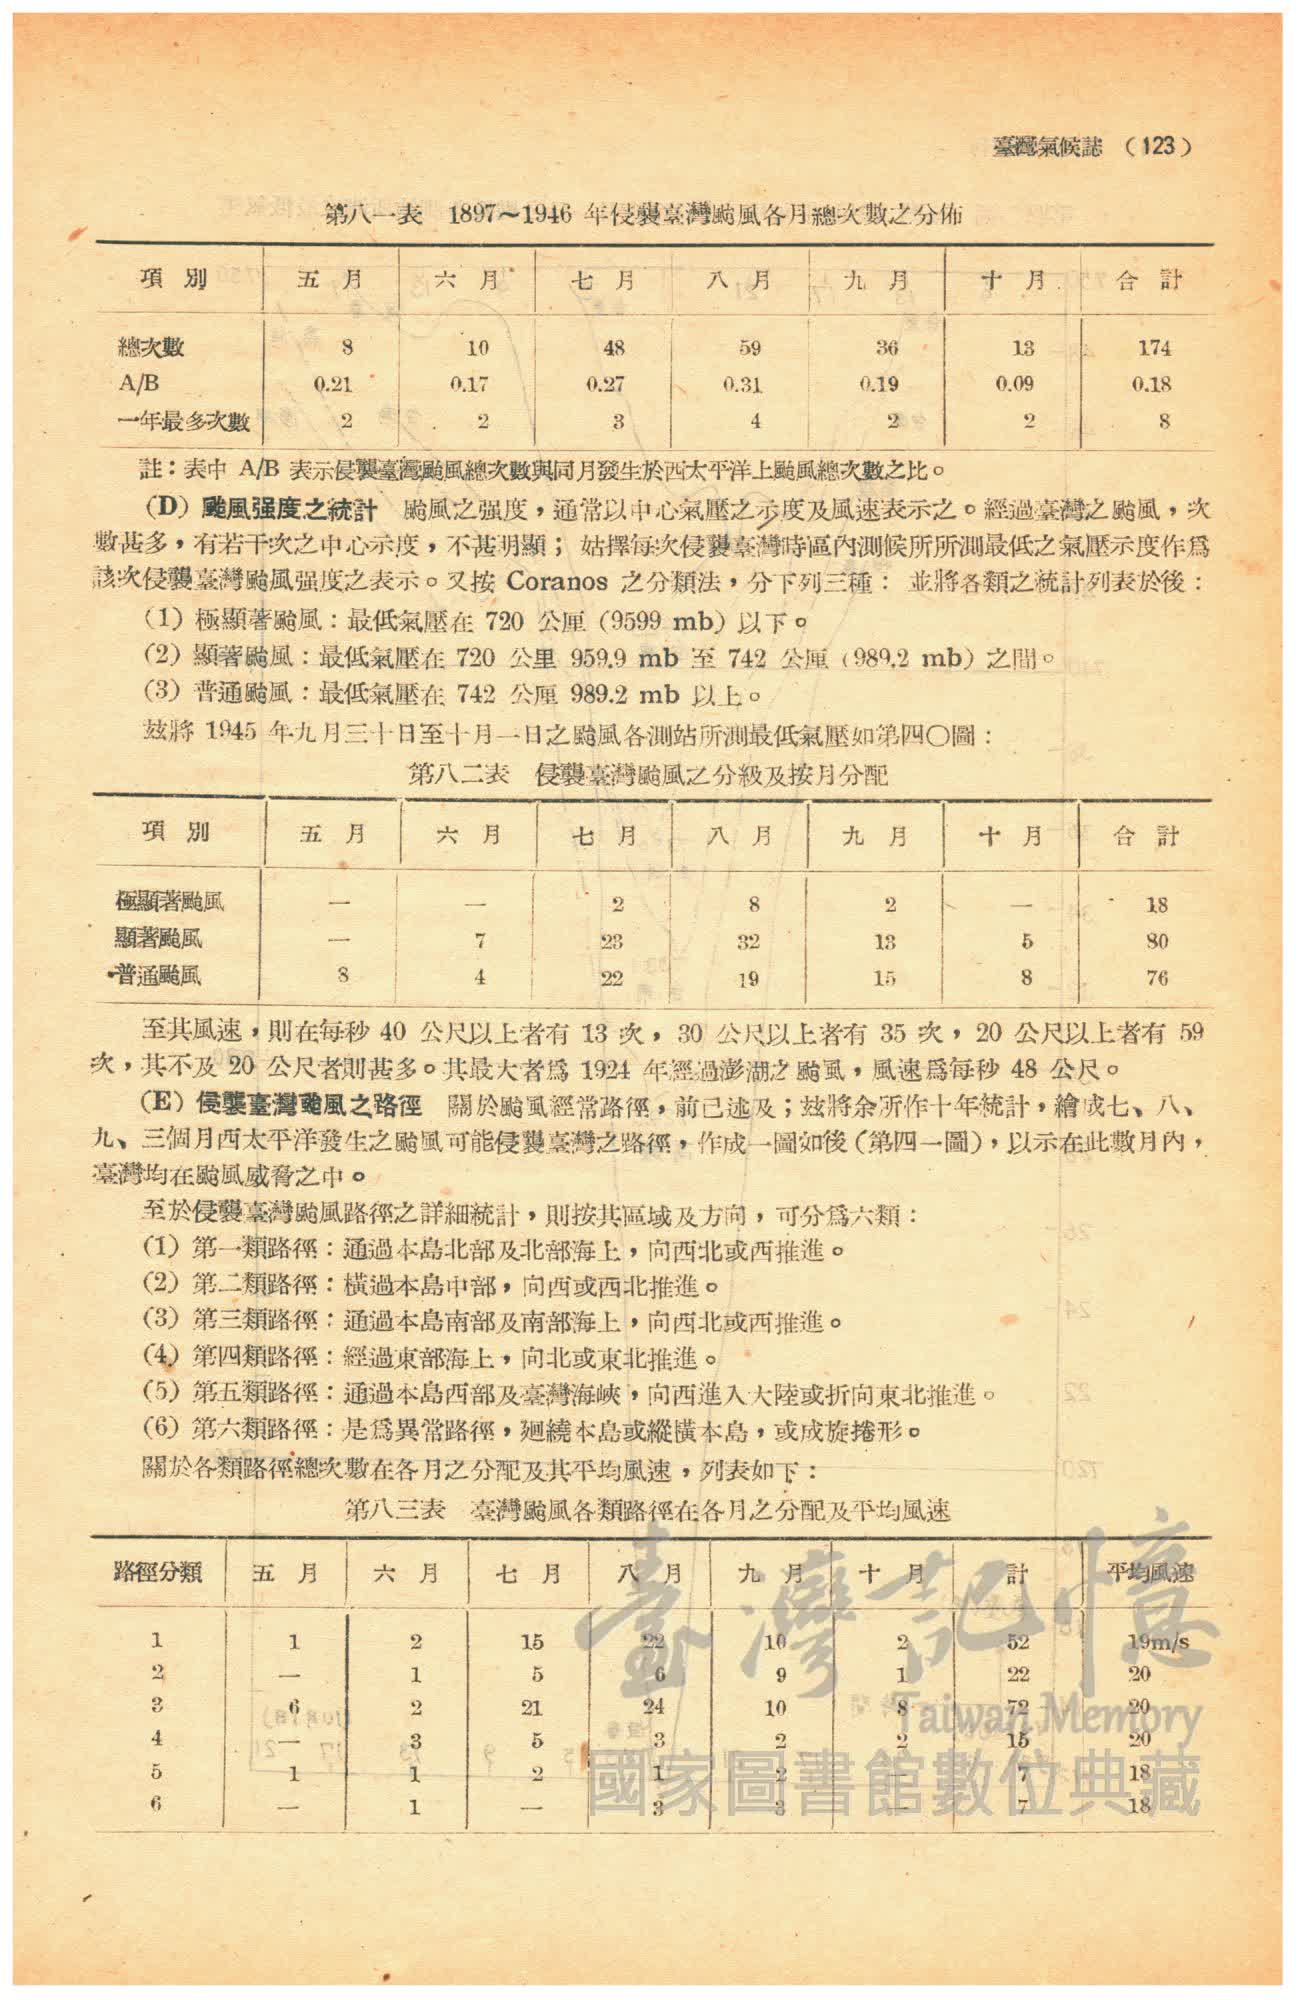 臺灣氣候誌 （123）
第八一表　1897～1946 年侵襲臺灣颱風各月總次數之分佈
項別　五月　六月　七月　八月　九月　十月　合計
總次數　8　10　48　59　36　13　174
A/B　0.21　0.17　0.27　0.31　0.19　0.09　0.18
一年最多次數　2　2　3　4　2　2　8
註：表中 A/B 表示侵襲臺灣颱風總次數與同月發生於西太平洋上颱風總次數之比。
(D) 颱風强度之統計　颱風之强度，通常以中心氣壓之示度及風速表示之。經過臺灣之颱風，次
數甚多，有若干次之中心示度，不甚明顯；姑擇每次侵襲臺灣時區內測候所所測最低之氣壓示度作爲
該次侵襲臺灣颱風强度之表示。又按 Coranos 之分類法，分下列三種：並將各類之統計列表於後：
(1) 極顯著颱風：最低氣壓在 720 公厘（9599 mb）以下。
(2) 顯著颱風：最低氣壓在 720 公里 959.9 mb 至 742 公厘（989.2 mb）之間。
(3) 普通颱風：最低氣壓在 742 公厘 989.2 mb 以上。
玆將 1945 年九月三十日至十月一日之颱風各測站所測最低氣壓如第四〇圖：
第八二表　侵襲臺灣颱風之分級及按月分配
項別　五月　六月　七月　八月　九月　十月　合計
極顯著颱風　—　—　2　8　2　—　18
顯著颱風　—　7　23　32　13　5　80
普通颱風　8　4　22　19　15　8　76
至其風速，則在每秒 40 公尺以上者有 13 次，30 公尺以上者有 35 次，20 公尺以上者有 59
次，其不及 20 公尺者則甚多。其最大者爲 1924 年經過澎湖之颱風，風速爲每秒 48 公尺。
(E) 侵襲臺灣颱風之路徑　關於颱風經常路徑，前已述及；玆將余所作十年統計，繪成七、八、
九、三個月西太平洋發生之颱風可能侵襲臺灣之路徑，作成一圖如後（第四一圖），以示在此數月內，
臺灣均在颱風威脅之中。
至於侵襲臺灣颱風路徑之詳細統計，則按其區域及方向，可分爲六類：
(1) 第一類路徑：通過本島北部及北部海上，向西北或西推進。
(2) 第二類路徑：橫過本島中部，向西或西北推進。
(3) 第三類路徑：通過本島南部及南部海上，向西北或西推進。
(4) 第四類路徑：經過東部海上，向北或東北推進。
(5) 第五類路徑：通過本島西部及臺灣海峽，向西進入大陸或折向東北推進。
(6) 第六類路徑：是爲異常路徑，廻繞本島或縱橫本島，或成旋捲形。
關於各類路徑總次數在各月之分配及其平均風速，列表如下：
第八三表　臺灣颱風各類路徑在各月之分配及平均風速
路徑分類　五月　六月　七月　八月　九月　十月　計　平均風速
1　1　2　15　22　10　2　52　19m/s
2　—　1　5　6　9　1　22　20
3　6　2　21　24　10　8　72　20
4　—　3　5　3　2　2　15　20
5　1　1　2　1　2　—　7　18
6　—　1　—　3　3　—　7　18
臺灣記憶
Taiwan Memory
國家圖書館數位典藏